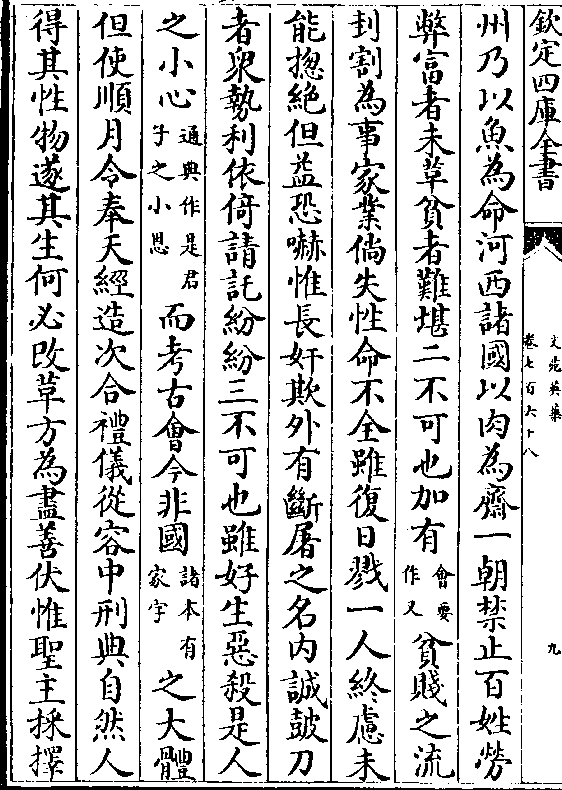 欽定四庫全書
文苑英華
卷七百六十八
九
州乃以魚為命河西諸國以肉為齋一朝禁止百姓勞
弊富者未革貧者難堪二不可也加有會要作又貧賤之流
刲割為事家業倘失性命不全雖復日戮一人終慮未
能揔絶但益恐嚇惟長奸欺外有斷屠之名内誠鼓刀
者衆勢利依倚請託紛紛三不可也雖好生惡殺是人
之小心通典作是君子之小恩而考古會今非國諸本有家字之大體
但使順月令奉天經造次合禮儀從容中刑典自然人
得其性物遂其生何必改革方為盡善伏惟聖主採擇